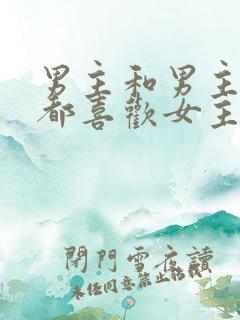 男主和男主
都喜歡女主
閉門雪夜讀
未经同意禁止转载